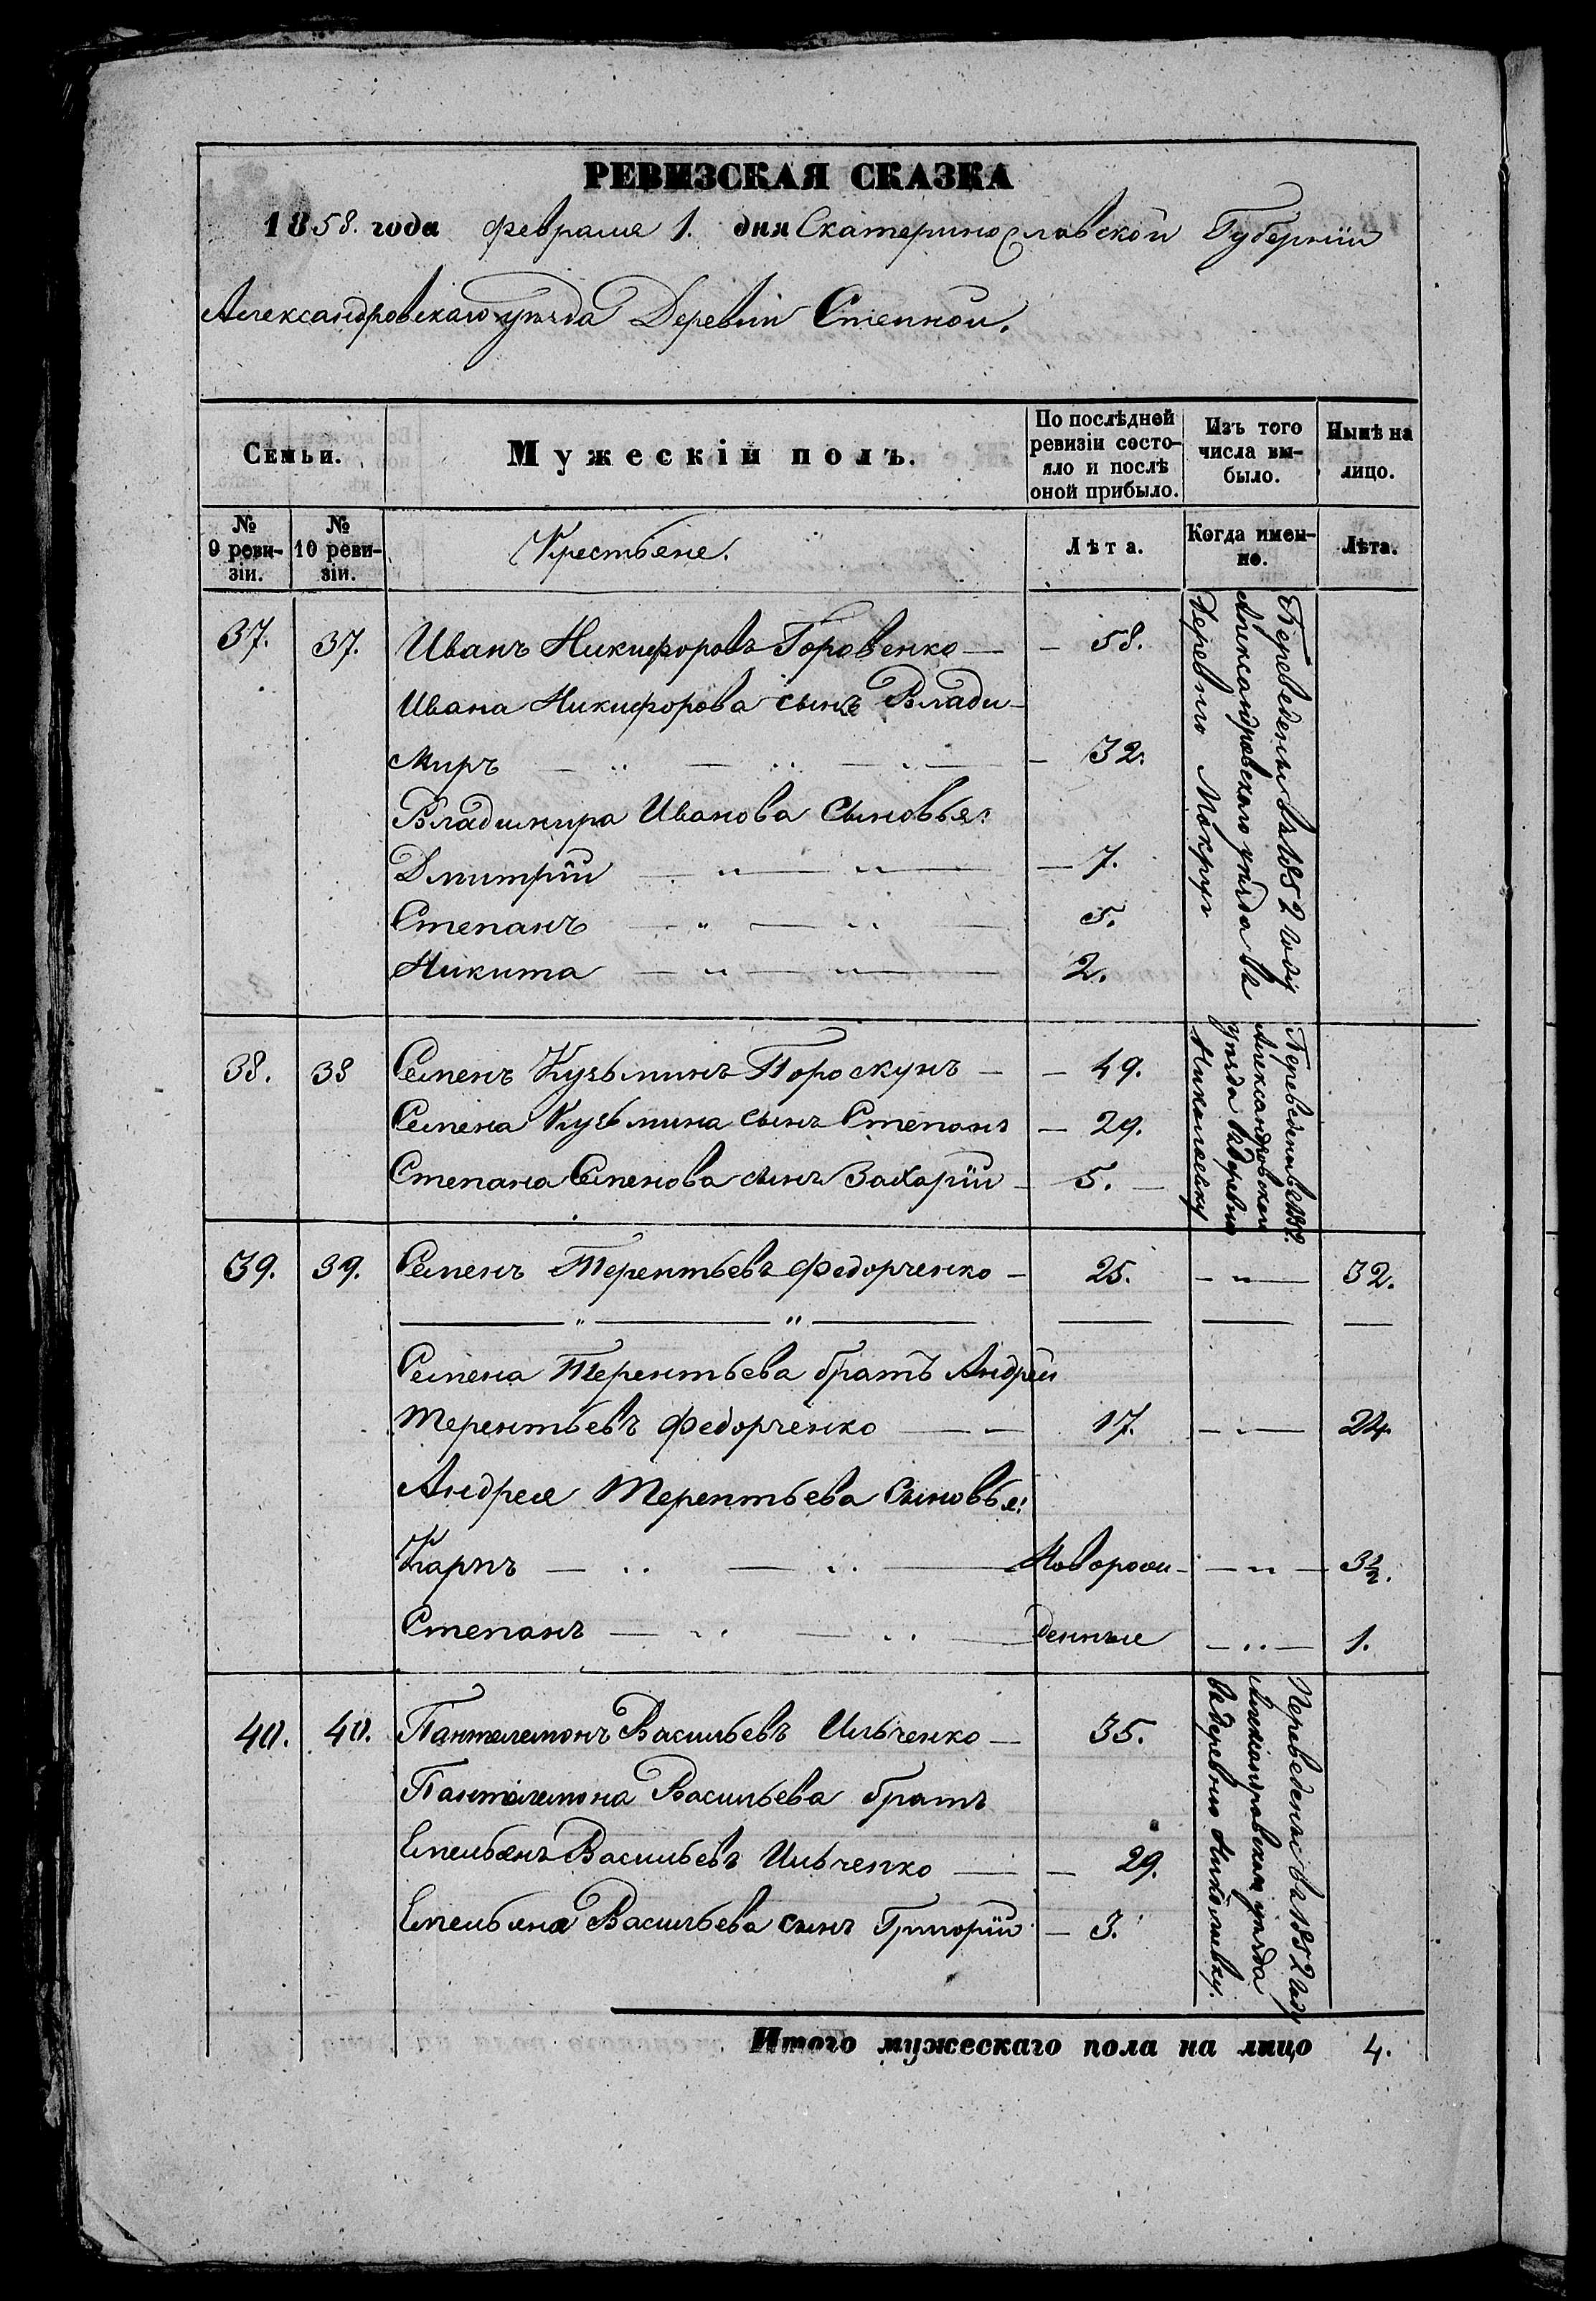 РЕВИЗСКАЯ СКАЗКА
1858. года февраля 1. дня Екатеринославской Губернии
Александровскаго уезда Деревни Степной.
Семьи.
Мужескій полъ.
По послѣдней ревизіи состо-
яло и послѣ
оной прибыло.
Изъ того
числа вы-
было.
Нынѣ на
лицо.
№
9 реви-
зіи.
№
10 реви-
зіи.
Крестьяне.
Лѣта.
Когда имен-
но.
Лѣта.
37. 37. Иванъ Никифоровъ Горовенко — 58.
Ивана Никифорова сынъ Влади-
миръ — 32.
Владимира Иванова Сыновья:
Дмитрій — 7.
Степанъ — 5.
Никита — 2.
Переведены въ 1852 году
Александровскаго уезда въ
деревню Мокрую
38. 38 Семенъ Кузьминъ Пороскунъ — 49.
Семена Кузьмина сынъ Степанъ — 29.
Степана Семенова сынъ Захарій — 5. —
Переведены въ 1852.
Александровскаго
уезда въ деревню
Николаевку
39. 39. Семенъ Терентьевъ Федорченко — 25. — " — 32.
— " — " — — — —
Семена Терентьева братъ Андрей
Терентьевъ Федорченко — 17. — " — 24.
Андрея Терентьева Сыновья:
Карпъ — Новорож- — " — 3½.
Степанъ — денные — " — 1.
40. 40. Пантелемонъ Васильевъ Ильченко — 35.
Пантелемона Васильева братъ
Емельянъ Васильевъ Ильченко — 29.
Емельяна Васильева сынъ Григорій — 3.
Переведены въ 1852 году
Александровскаго уезда
въ деревню Николаевку.
Итого мужескаго пола на лицо 4.